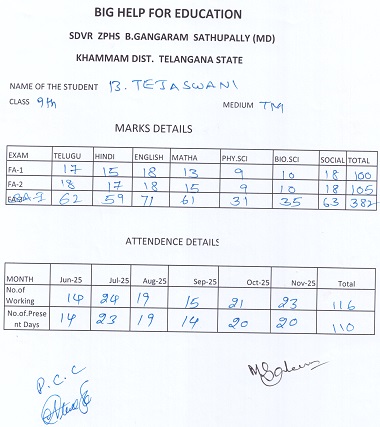 BIG HELP FOR EDUCATION
SDVR ZPHS B.GANGARAM SATHUPALLY (MD)
KHAMMAM DIST. TELANGANA STATE
NAME OF THE STUDENT B. TEJASWANI
CLASS 9th MEDIUM TM
MARKS DETAILS
EXAM TELUGU HINDI ENGLISH MATHA PHY.SCI BIO.SCI SOCIAL TOTAL
FA-1 17 15 18 13 9 10 18 100
FA-2 18 17 18 15 9 10 18 105
62 59 71 61 31 35 63 382
ATTENDENCE DETAILS
MONTH Jun-25 Jul-25 Aug-25 Sep-25 Oct-25 Nov-25 Total
No.of Working 14 24 19 15 21 23 116
No.of.Prese nt Days 14 23 19 14 20 20 110
P.C.C